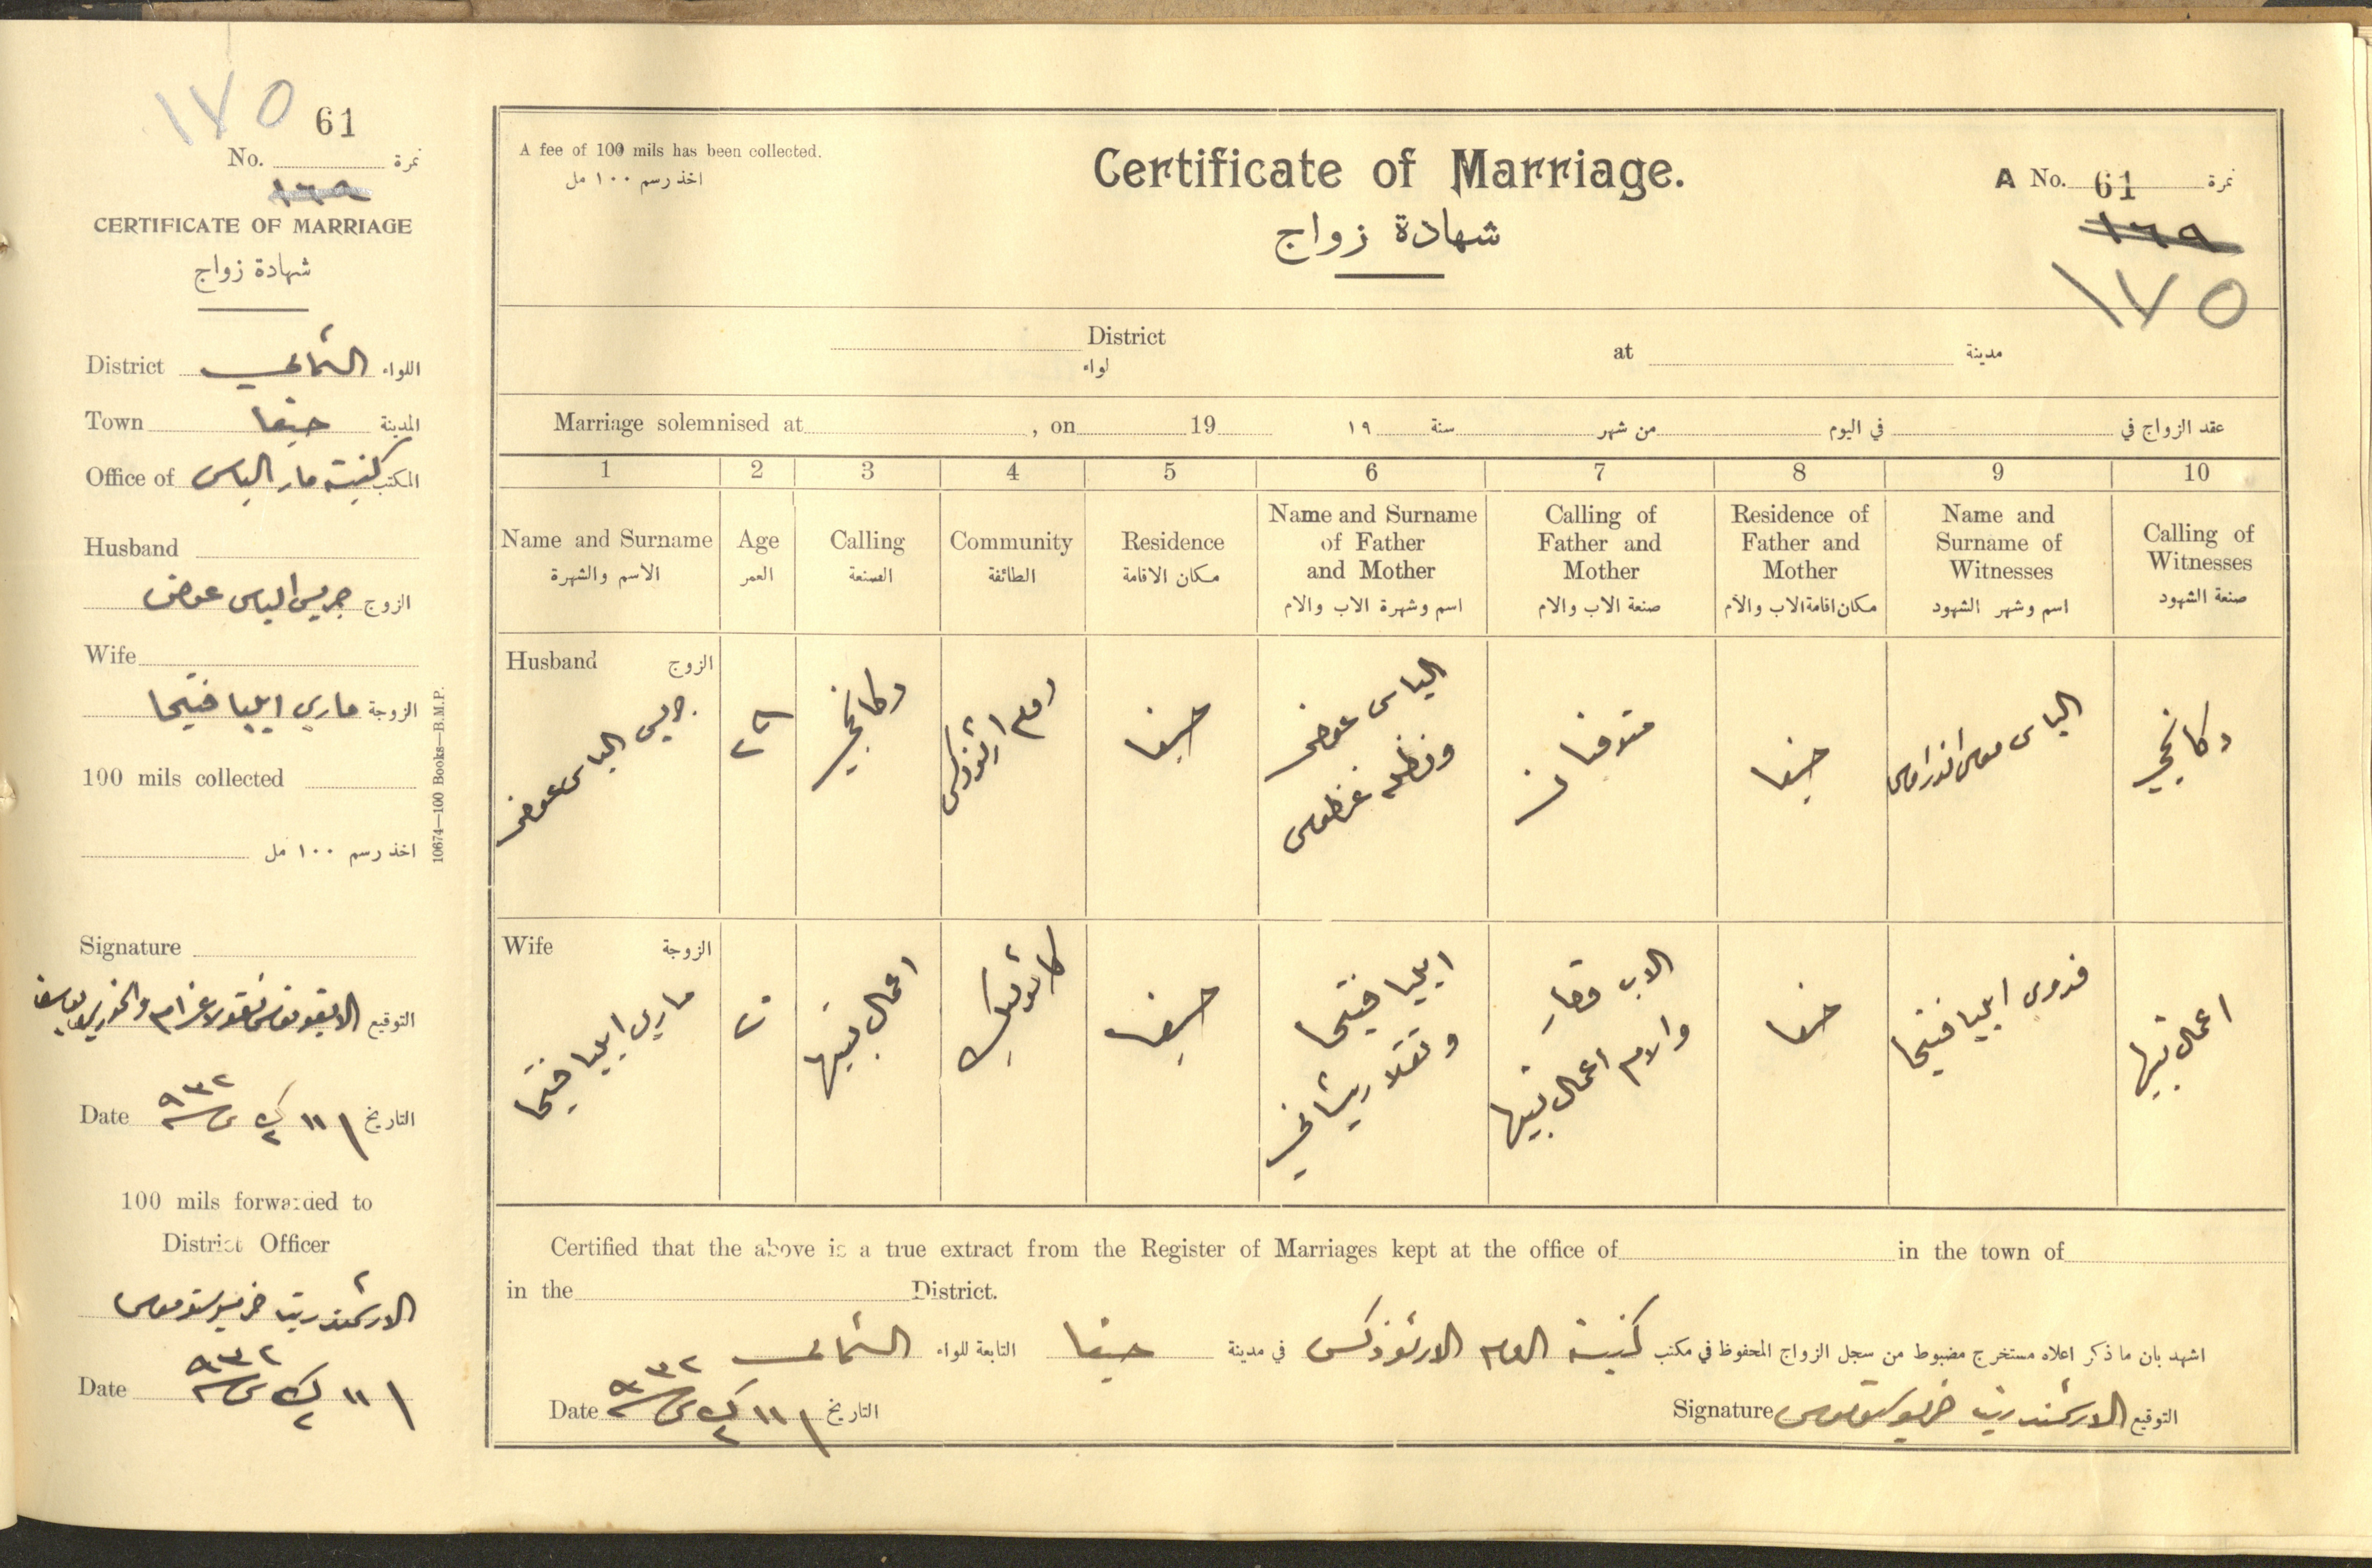 ١٧٥
61
No. نمرة
١٦٩
CERTIFICATE OF MARRIAGE
شهادة زواج
District الشمالي اللواء
Town حيفا المدينة
Office of كنيسة مار الياس المكتب
Husband
الزوج جريس الياس عوض
Wife
الزوجة ماري ايليا فتيحا
100 mils collected
اخذ رسم ١٠٠ مل
Signature
التوقيع الايقونوموس نقولا عزام والخوري
Date ١١ ك٢ سنة ٩٣٢ التاريخ
100 mils forwarded to
District Officer
الارشمندريت خريسوستوموس
Date ١١ ك٢ سنة ٩٣٢
10674—100 Books—B.M.P.
A fee of 100 mils has been collected.
اخذ رسم ١٠٠ مل
Certificate of Marriage.
شهادة زواج
A No. 61 نمرة
١٦٩
١٧٥
District
لواء
at مدينة
Marriage solemnised at , on 19 ١٩ سنة من شهر في اليوم عقد الزواج في
1 2 3 4 5 6 7 8 9 10
Name and Surname
الاسم والشهرة
Age
العمر
Calling
الصنعة
Community
الطائفة
Residence
مكان الاقامة
Name and Surname
of Father
and Mother
اسم وشهرة الاب والام
Calling of
Father and
Mother
صنعة الاب والام
Residence of
Father and
Mother
مكان اقامة الاب والام
Name and
Surname of
Witnesses
اسم وشهر الشهود
Calling of
Witnesses
صنعة الشهود
Husband الزوج
جريس الياس عوض
٢٦
دكانجي
روم ارثوذكس
حيفا
الياس عوض
متوفيان
حيفا
الياس موسى
دكانجي
Wife الزوجة
ماري ايليا فتيحا
اعمال بيتها
كاثوليك
حيفا
ايليا فتيحا
وتقلا
الاب
والام اعمال بيتها
حيفا
ايليا فتيحا
اعمال بيتها
Certified that the above is a true extract from the Register of Marriages kept at the office of in the town of
in the District.
اشهد بان ما ذكر اعلاه مستخرج مضبوط من سجل الزواج المحفوظ في مكتب كنيسة الروم الارثوذكس في مدينة حيفا التابعة للواء الشمالي
Date ١١ ك٢ سنة ٩٣٢ التاريخ
Signature الارشمندريت خريسوستوموس التوقيع